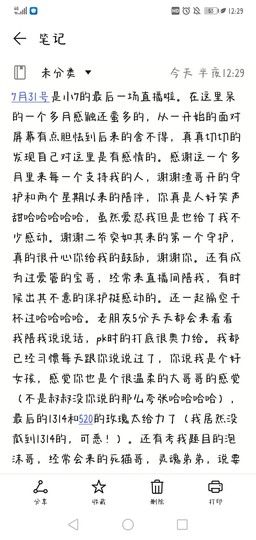 4G
HD
12:29
笔记
未分类
今天 半夜12:29
7月31号是小7的最后一场直播啦。在这里呆
的一个多月感触还蛮多的，从一开始的面对
屏幕有点胆怯到后来的舍不得，真真切切的
发现自己对这里是有感情的。感谢这一个多
月里来每一个支持我的人，谢谢渣哥开的守
护和两个星期以来的陪伴，你真是人好笑声
甜哈哈哈哈哈，虽然爱怼我但是也给了我不
少感动。谢谢二爷突如其来的第一个守护，
真的很开心你给我的鼓励，谢谢你。还有成
为过爱豆的宝哥，经常来直播间陪我，有时
候出其不意的保护挺感动的。还一起隔空干
杯过哈哈哈哈。老朋友5分天天都会来看看
我陪我说说话，pk时的打底很奥力给。我都
已经习惯每天跟你说说过了，你说我是个好
女孩，感觉你也是个很温柔的大哥哥的感觉
（不是叔叔没你说的那么夸张哈哈哈哈），
最后的1314和520的玫瑰太给力了（我居然没
截到1314的，可恶！）。还有考我题目的泡
沫哥，经常会来的死猫哥，灵魂弟弟，说要
分享
收藏
删除
打印